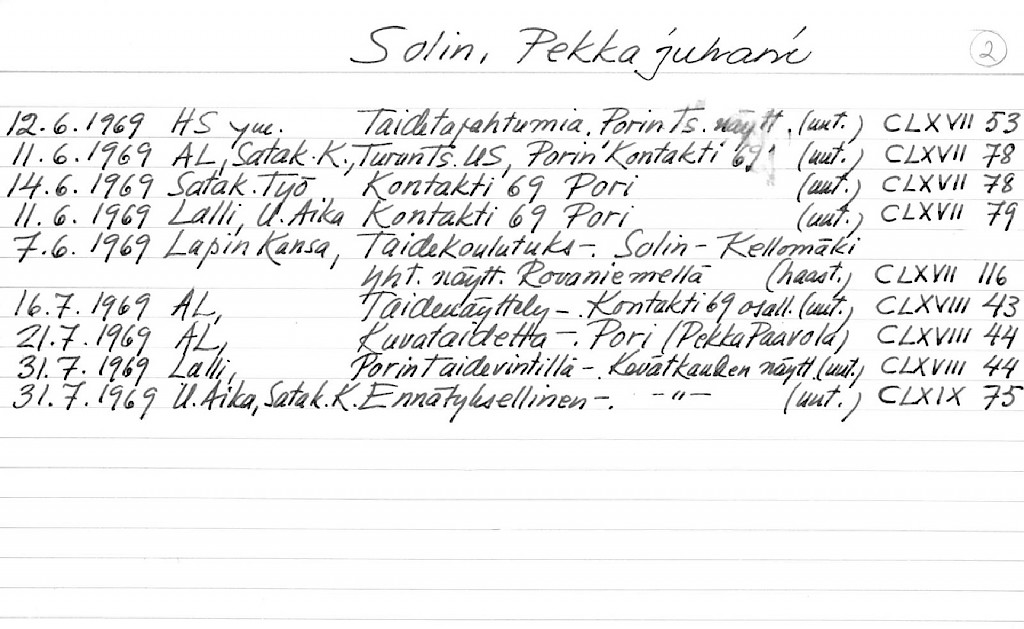 Solin, Pekka Juhani 2
12.6.1969 HS ym. Taidetapahtumia. Porin Ts. näytt. (uut.) CLXVII 53
11.6.1969 AL, Satak.K., Turun Ts. US, Porin "Kontakti 69" (uut.) CLXVII 78
14.6.1969 Satak. Työ Kontakti 69 Pori (uut.) CLXVII 78
11.6.1969 Lalli, U. Aika Kontakti 69 Pori (uut.) CLXVII 79
7.6.1969 Lapin Kansa, Taidekoulutuks-. Solin - Kellomäki
yht. näytt. Rovaniemellä (haast.) CLXVII 116
16.7.1969 AL, Taidenäyttely-. Kontakti 69 osall. (uut.) CLXVIII 43
21.7.1969 AL, Kuvataidetta-. Pori (Pekka Paavola) CLXVIII 44
31.7.1969 Lalli, Porin taidevintillä-. Kevätkauden näytt. (uut.) CLXVIII 44
31.7.1969 U. Aika, Satak.K. Ennätyksellinen-. -"- (uut.) CLXIX 75